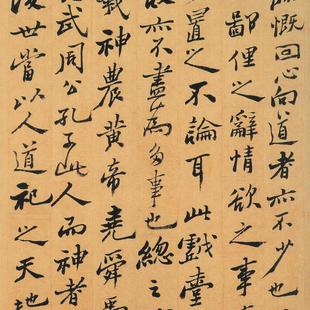 慨回心向道者亦不少也
鄙俚之辭情欲之事
置之不論耳此戲臺
亦不盡為多事也總之
羲神農黃帝堯舜禹
武周公孔子此人而神者
後世當以人道祀之天地